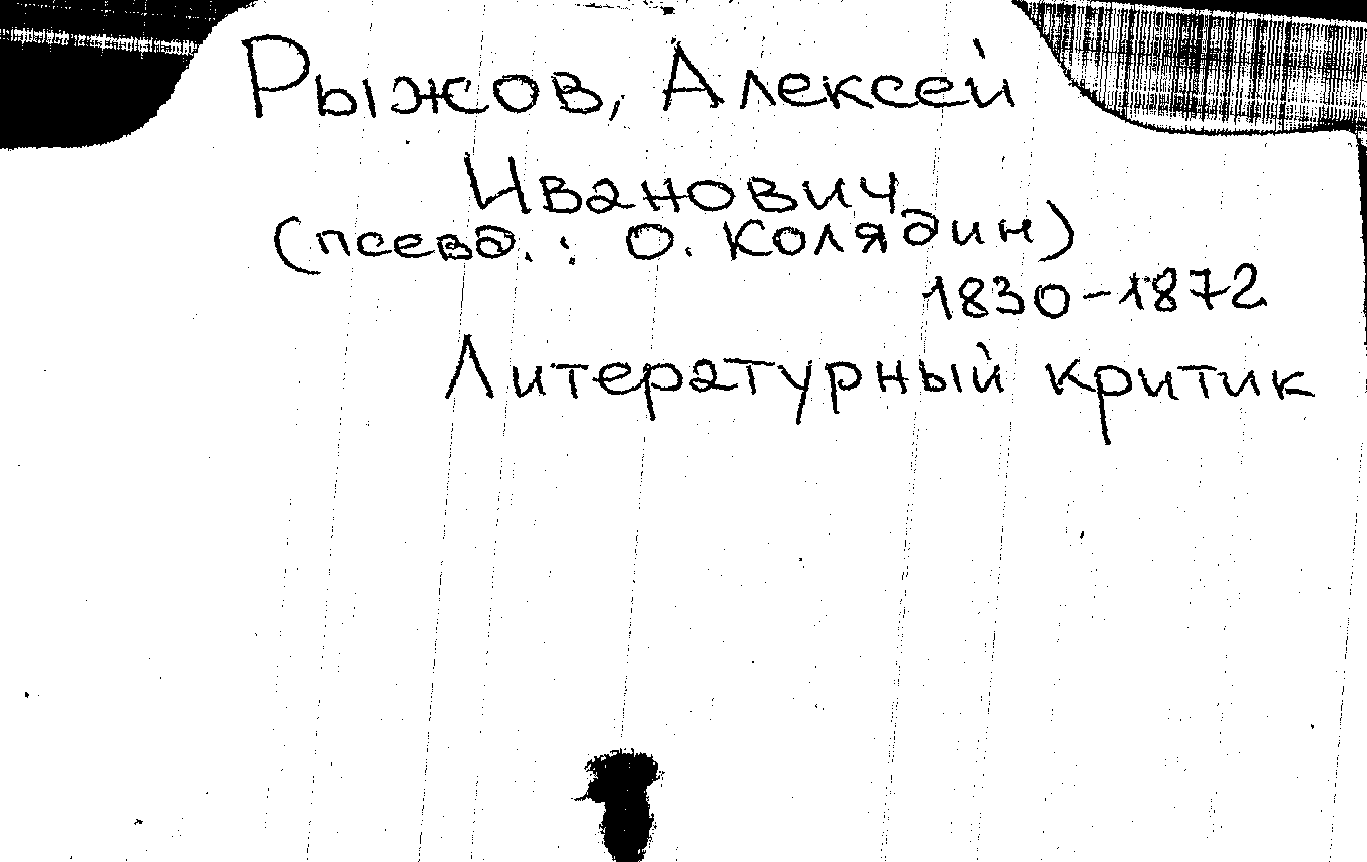 Рыжов, Алексей
Иванович
(псевд.: О. Колядин)
1830-1872
Литературный критик